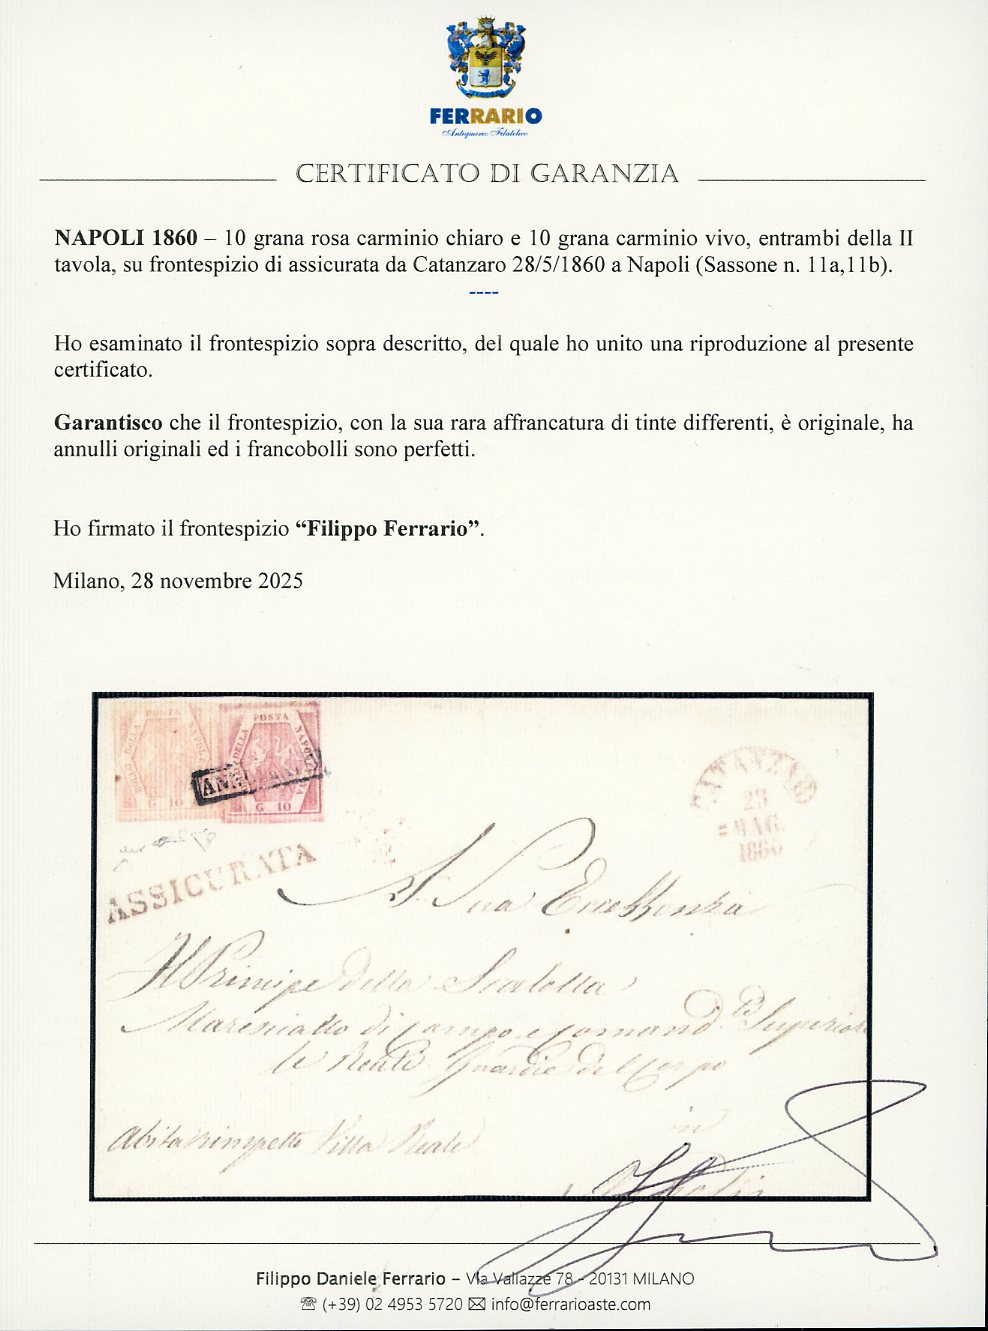 FERRARIO
Antiquario Filatelico
CERTIFICATO DI GARANZIA
NAPOLI 1860 – 10 grana rosa carminio chiaro e 10 grana carminio vivo, entrambi della II
tavola, su frontespizio di assicurata da Catanzaro 28/5/1860 a Napoli (Sassone n. 11a,11b).
----
Ho esaminato il frontespizio sopra descritto, del quale ho unito una riproduzione al presente
certificato.
Garantisco che il frontespizio, con la sua rara affrancatura di tinte differenti, è originale, ha
annulli originali ed i francobolli sono perfetti.
Ho firmato il frontespizio “Filippo Ferrario”.
Milano, 28 novembre 2025
POSTA
DELLA
G 10
G 10
CATANZARO
MAG.
1860
ASSICURATA
A Sua Eccellenza
Il Principe della Scaletta
Maresciallo di Campo e Comand.te Superiore
le Reali Guardie del Corpo
in
Abita rimpetto Villa Reale
Napoli
Filippo Daniele Ferrario – Via Vallazze 78 - 20131 MILANO
☏ (+39) 02 4953 5720 ✉ info@ferrarioaste.com